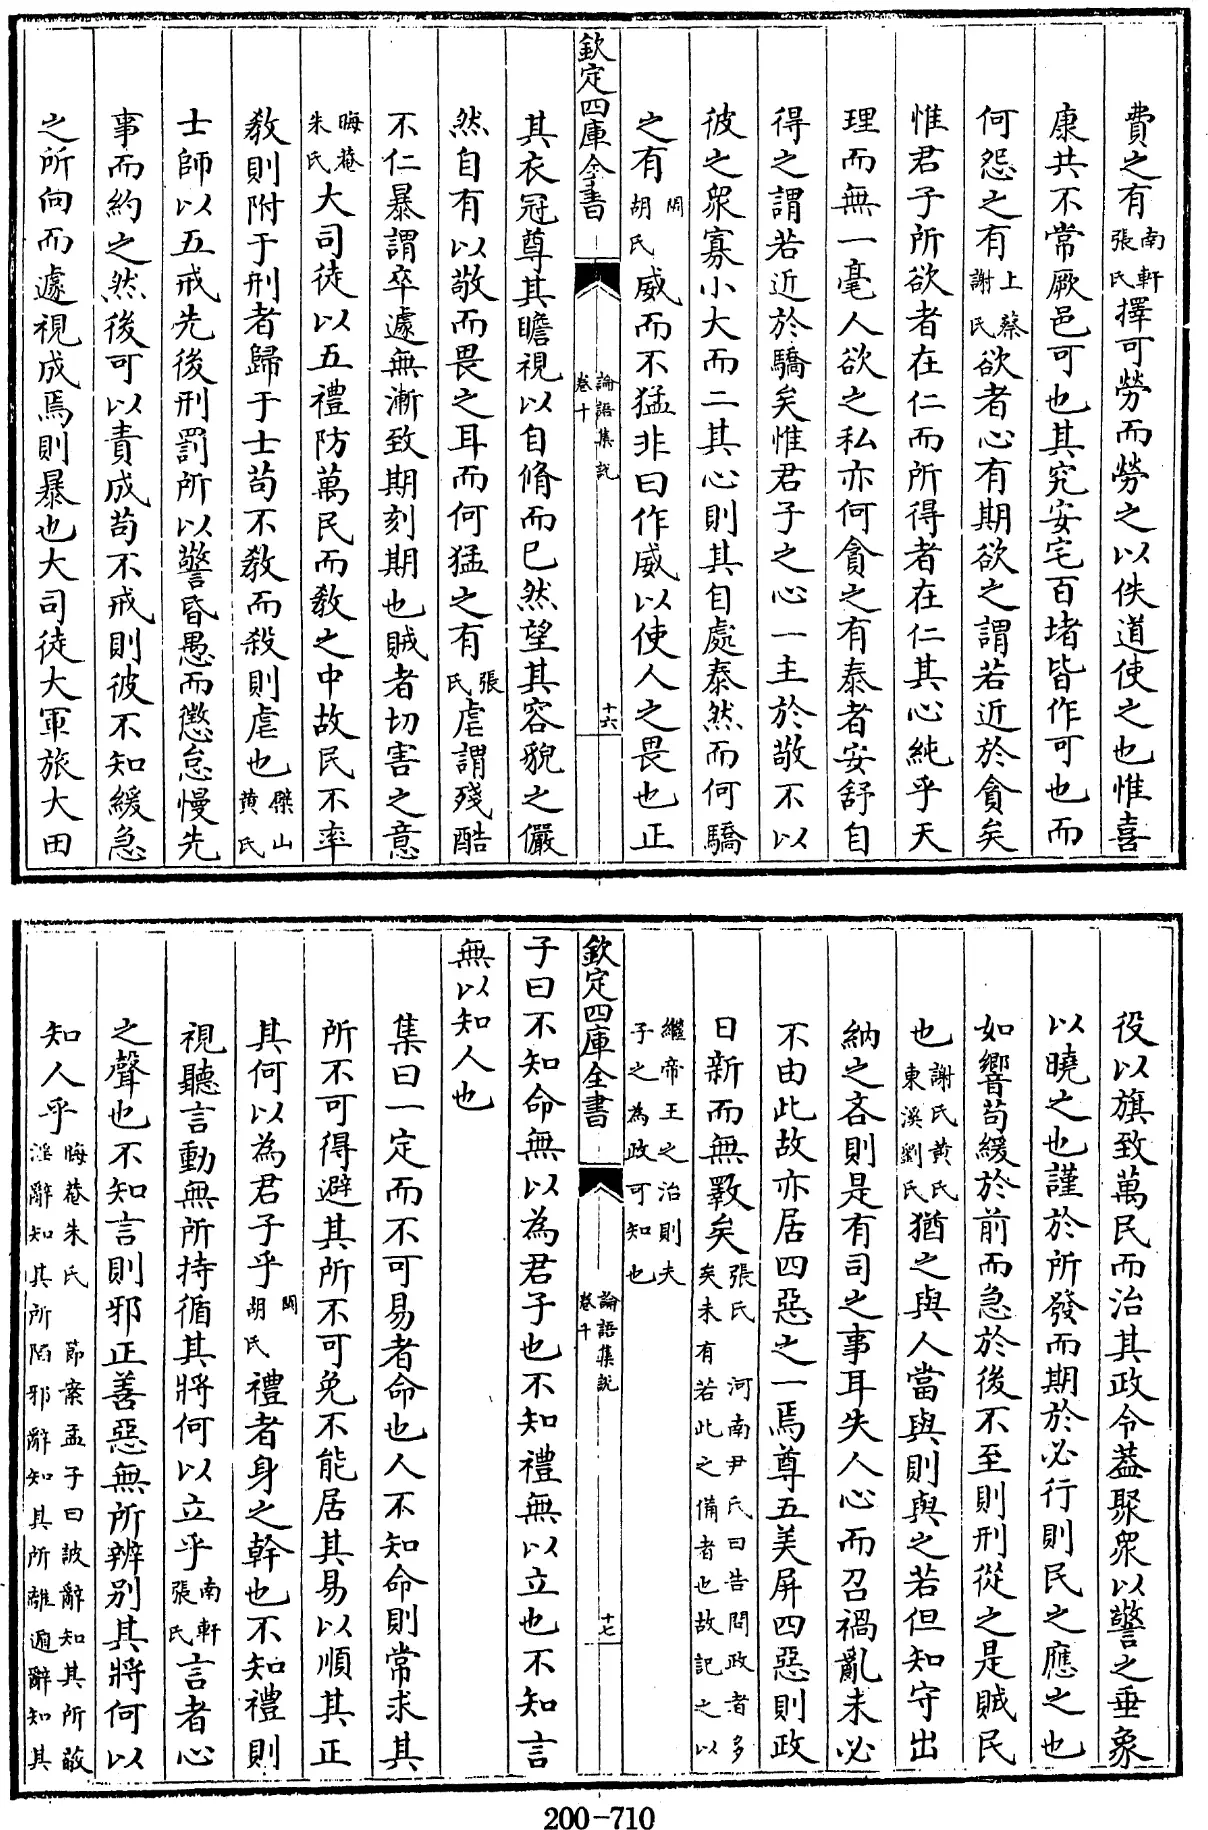 費之有南軒張氏擇可勞而勞之以佚道使之也惟喜
康共不常厥邑可也其究安宅百堵皆作可也而
何怨之有上蔡謝氏欲者心有期欲之謂若近於貪矣
惟君子所欲者在仁而所得者在仁其心純乎天
理而無一毫人欲之私亦何貪之有泰者安舒自
得之謂若近於驕矣惟君子之心一主於敬不以
彼之衆寡小大而二其心則其自處泰然而何驕
之有閩胡氏威而不猛非曰作威以使人之畏也正
欽定四庫全書
論語集說
卷十
十六
其衣冠尊其瞻視以自脩而已然望其容貌之儼
然自有以敬而畏之耳而何猛之有張氏虐謂殘酷
不仁暴謂卒遽無漸致期刻期也賊者切害之意
晦菴朱氏大司徒以五禮防萬民而敎之中故民不率
敎則附于刑者歸于士苟不敎而殺則虐也傑山黄氏
士師以五戒先後刑罰所以警昏愚而懲怠慢先
事而約之然後可以責成苟不戒則彼不知緩急
之所向而遽視成焉則暴也大司徒大軍旅大田
役以旗致萬民而治其政令葢聚衆以警之垂象
以曉之也謹於所發而期於必行則民之應之也
如響苟緩於前而急於後不至則刑從之是賊民
也謝氏黄氏東溪劉氏猶之與人當與則與之若但知守出
納之吝則是有司之事耳失人心而召禍亂未必
不由此故亦居四惡之一焉尊五美屏四惡則政
日新而無斁矣張氏 河南尹氏曰告問政者多矣未有若此之備者也故記之以
繼帝王之治則夫子之為政可知也
欽定四庫全書
論語集說
卷十
十七
子曰不知命無以為君子也不知禮無以立也不知言
無以知人也
集曰一定而不可易者命也人不知命則常求其
所不可得避其所不可免不能居其易以順其正
其何以為君子乎閩胡氏禮者身之幹也不知禮則
視聽言動無所持循其將何以立乎南軒張氏言者心
之聲也不知言則邪正善惡無所辨别其將何以
知人乎晦菴朱氏 節案孟子曰詖辭知其所蔽淫辭知其所陷邪辭知其所離遁辭知其
200-710